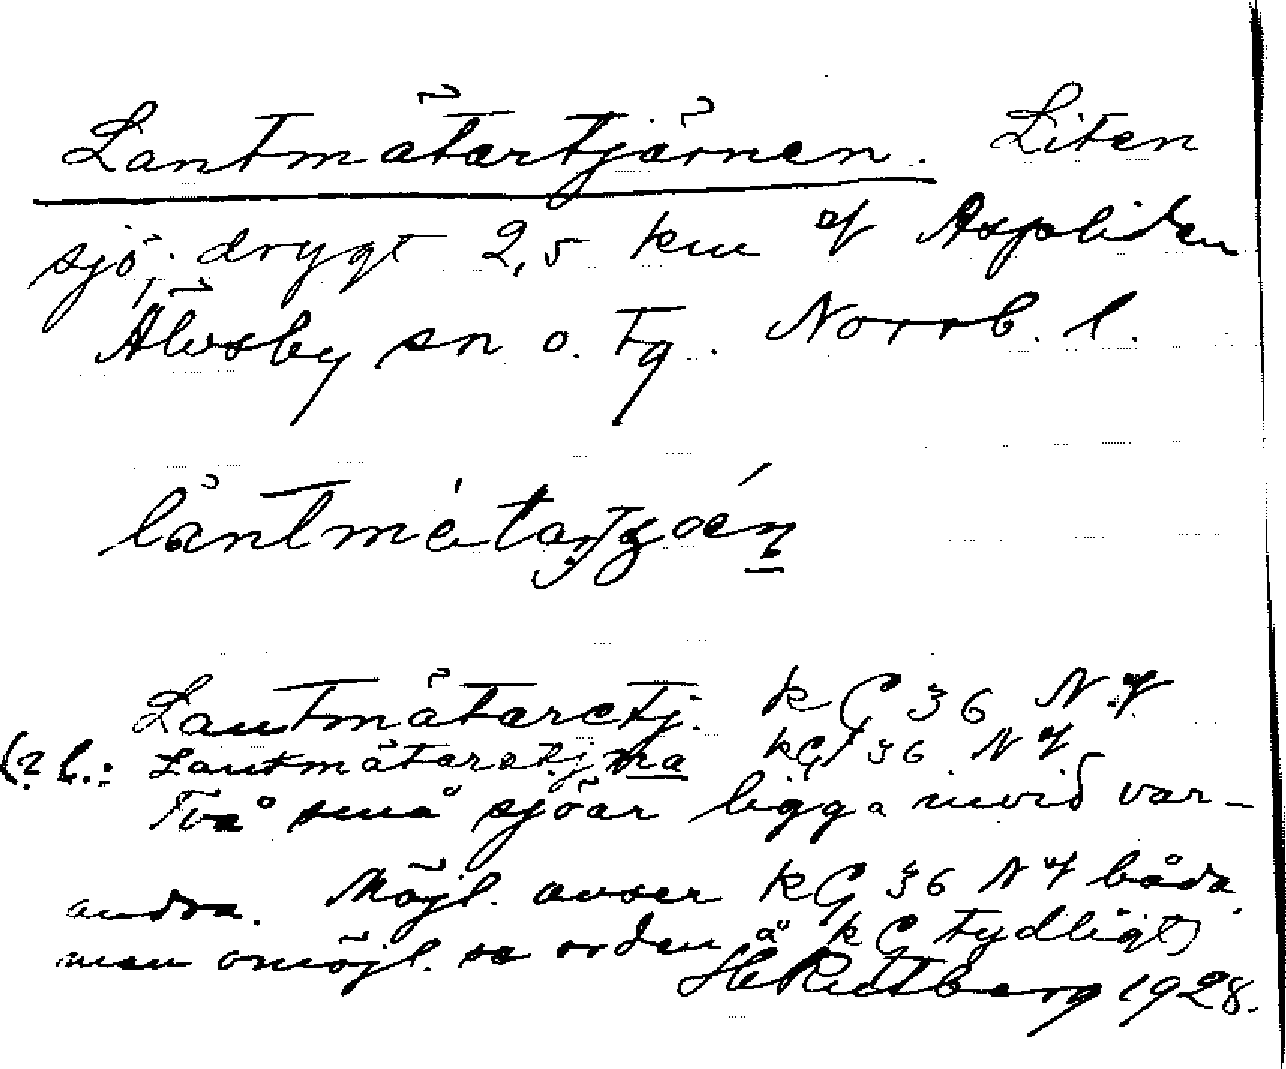 Lantmätartjärnen. Liten
sjö, drygt 2,5 km af Aspliden
Älvsby sn o. tg. Norrb. l.
Lantmätaretj. kG 36 NV
(? l.: Lantmätaretjärna kG 36 NV
Två små sjöar ligga invid var-
andra. Möjl. avser kG 36 NV båda,
men omöjl. se orden å kG tydligt)
H Rutberg 1928.